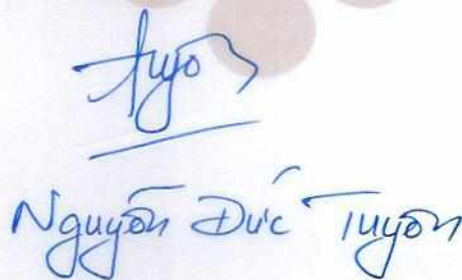 Tuyôn
Nguyễn Đức Tuyôn